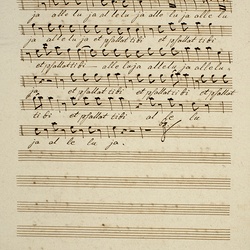 ja alle lu ja al le lu ja alle lu ja alle lu
ja alle lu ja et psallat tibi et psallat tibi
et psallat tibi — alle lu ja alle lu ja alle lu
ja et psallat tibi et psallat tibi et psallat
tibi et psallat tibi al le lu
ja al le lu ja.